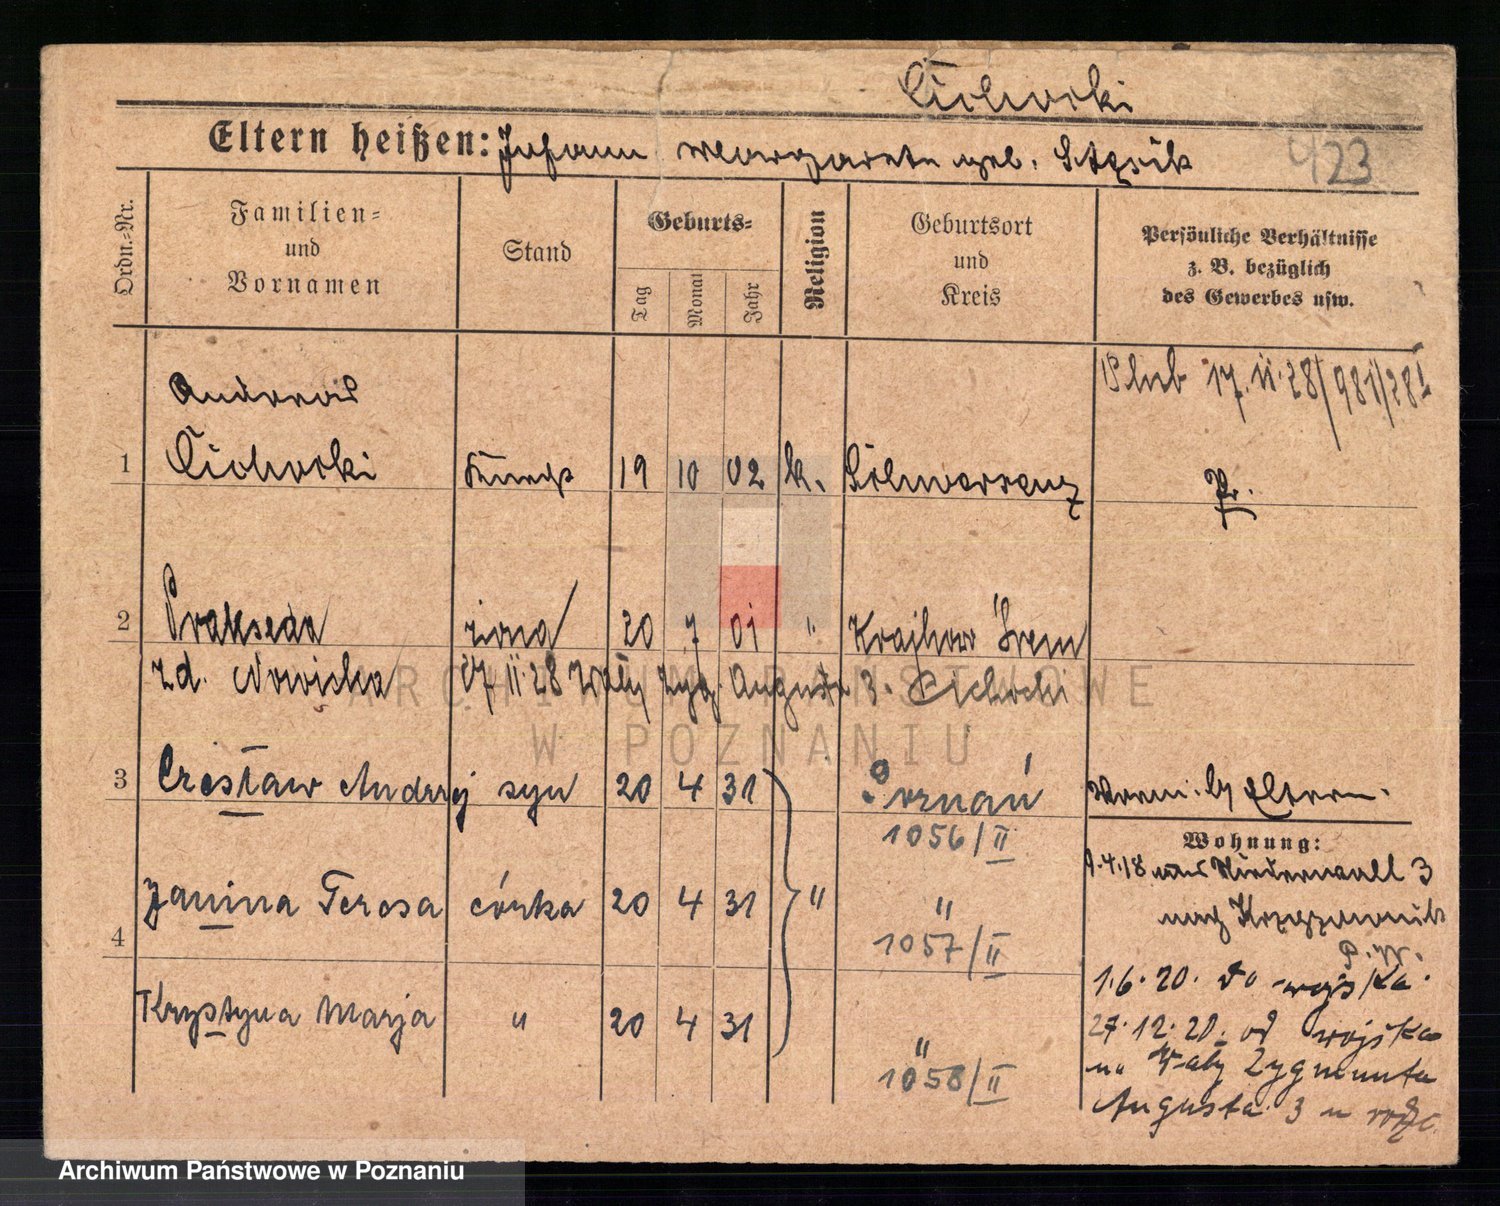 Cichocki
Eltern heißen: Johann Margarete geb. Stęsik
423
Ordn.-Nr.
Familien- und Vornamen
Stand
Geburts-
Tag
Monat
Jahr
Religion
Geburtsort und Kreis
Persönliche Verhältnisse z. B. bezüglich des Gewerbes usw.
Ślub 17.11.28/981/28 I
Andreas
1 Cichocki 19 10 02 k. Schwersenz Pr.
2 Prakseda żona 20 7 01 " Krajkow Śrem
zd. Nowicka 17 11 28 Wały Zyg. Augusta 3. Cichocki
3 Czesław Andrzej syn 20 4 31 Poznań
1056/II
Worn. by Eltern.
Wohnung:
Janina Teresa córka 20 4 31 " "
1057/II
4
Krystyna Marja " 20 4 31 "
1058/II
9.4.18 Niederwall 3
nach
P.W.
1.6.20. do wojska.
27.12.20. od wojska
na Wały Zygmunta
Augusta 3 u rodz.
ARCHIWUM PAŃSTWOWE
W POZNANIU
Archiwum Państwowe w Poznaniu